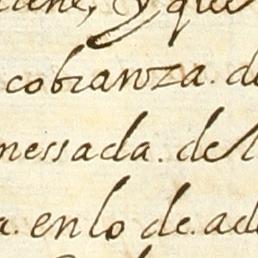 y que
cobranza. de
messada. de l
a. en lo de. ade